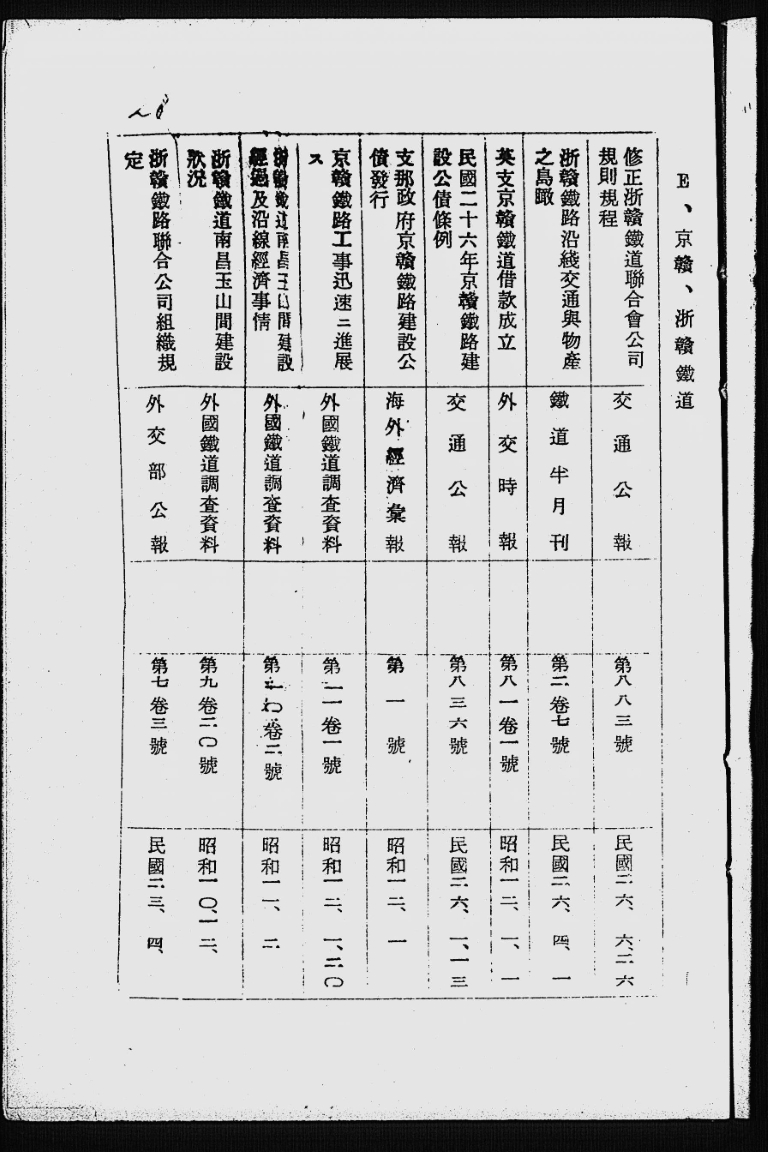 E、京贛、浙贛鐵道
修正浙贛鐵道聯合會公司
規則規程
交通公報
第八八三號
民國二六、六、二六
浙贛鐵路沿綫交通與物產
之鳥瞰
鐵道半月刊
第二卷七號
民國二六、四、一
英支京贛鐵道借款成立
外交時報
第八一卷一號
昭和一二、一、一
民國二十六年京贛鐵路建
設公債條例
交通公報
第八三六號
民國二六、一、一三
支那政府京贛鐵路建設公
債發行
海外經濟彙報
第一號
昭和一二、一
京贛鐵路工事迅速ニ進展
ス
外國鐵道調查資料
第一一卷一號
昭和一二、一、二〇
浙贛鐵道南昌玉山間建設
經過及沿線經濟事情
外國鐵道調查資料
第一〇卷二號
昭和一一、二
浙贛鐵道南昌玉山間建設
狀況
外國鐵道調查資料
第九卷二〇號
昭和一〇、一二、
浙贛鐵路聯合公司組織規
定
外交部公報
第七卷三號
民國二三、四、